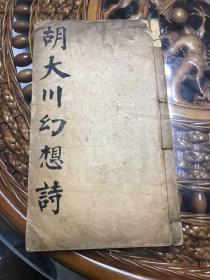 胡大川幻想詩